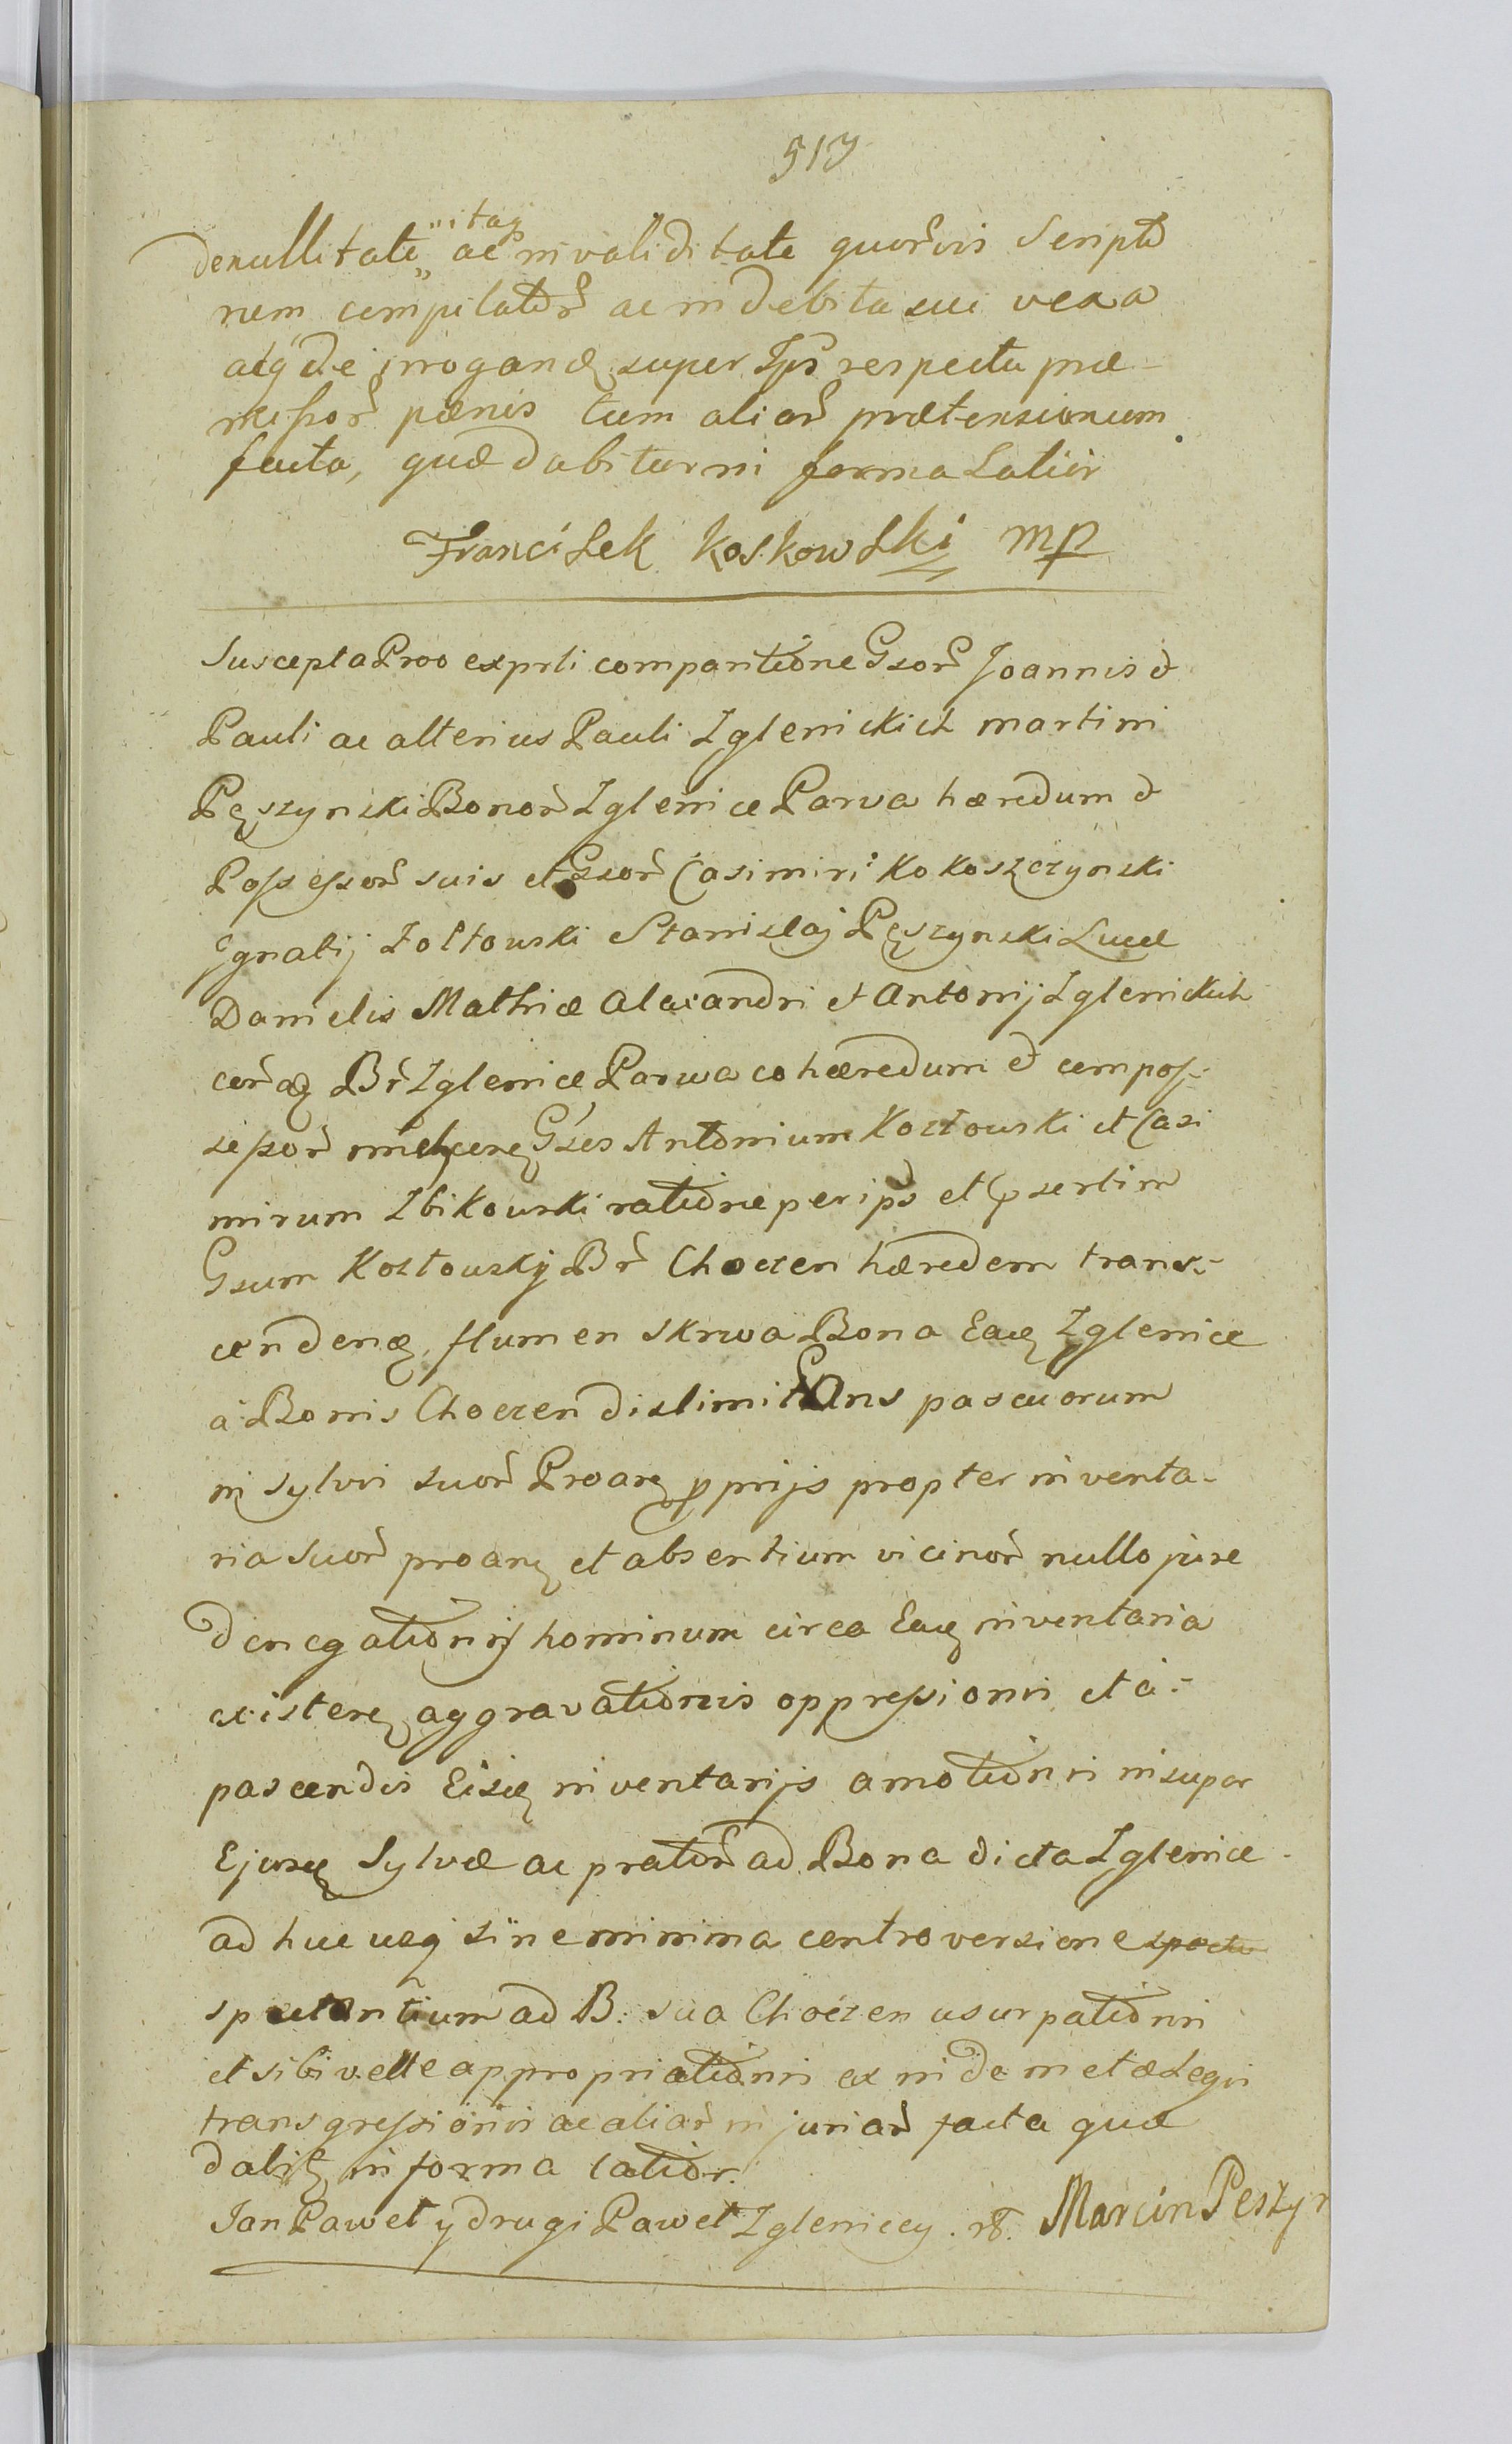 517
itaq
de nullitate „ ac invaliditate quorvis Scripto
num compilator ac indebita sui vexa
atq de irrogand super Ips respectu præ-
missor pænis tum aliar prætensionum
facta, quæ dabitur in forma Latior
Francisek Koskowski mp
Suscepta Proo exprli comparitione Gsor Joannis et
Pauli ac alterius Pauli Zglenickich Martini
Pęszynski Bonor Zglenice Parva hæredum et
Possessor suis et Gsor Casimiri Kokoszczynski
Ignatij Żołtowski Stanislaj Pęszynski Lucæ
Danielis Mathiæ Alexandri et Antonij Zglenickich
eor Br Zglenice Parwa cohæredum et compos-
sessor Gses Antonium Kozłowski et Casi
mirum Zbikowski ratione per ips et præsertim
Gsum Kozłowsky Br Choczen hæredem trans-
cenden flumen Skrwa Bona Ead Zglenice
a Bonis Choczen dislimitans pascuorum
in sylvis suor Proar pprijs propter inventa-
ria suor proar et absentium vicinor nullo jure
denegationis hominum circa Ead inventaria
existen aggravationis oppressionis et a-
pascendis Eisd inventarijs amotionis insuper
Ejusd Sylvæ ac prator ad Bona dicta Zglenice
ad huc usq sine minima controversione specta
spectantium ad B: sua Choczen usurpationis
et sibi velle appropriationis ex inde metæ Legis
transgressionis ac aliar injuriar facta quæ
dabit in forma latior.
Jan Paweł y drugi Paweł Zgleniccy. Marcin Peszyn